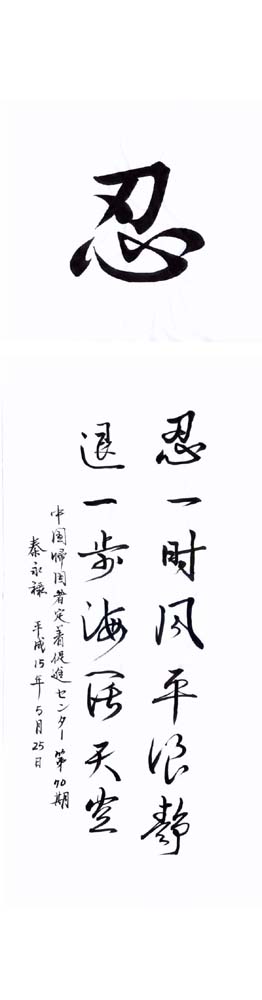 忍
忍一时风平浪静
退一步海阔天空
中国帰国者定着促進センター 第70期
秦永禄 平成15年5月25日